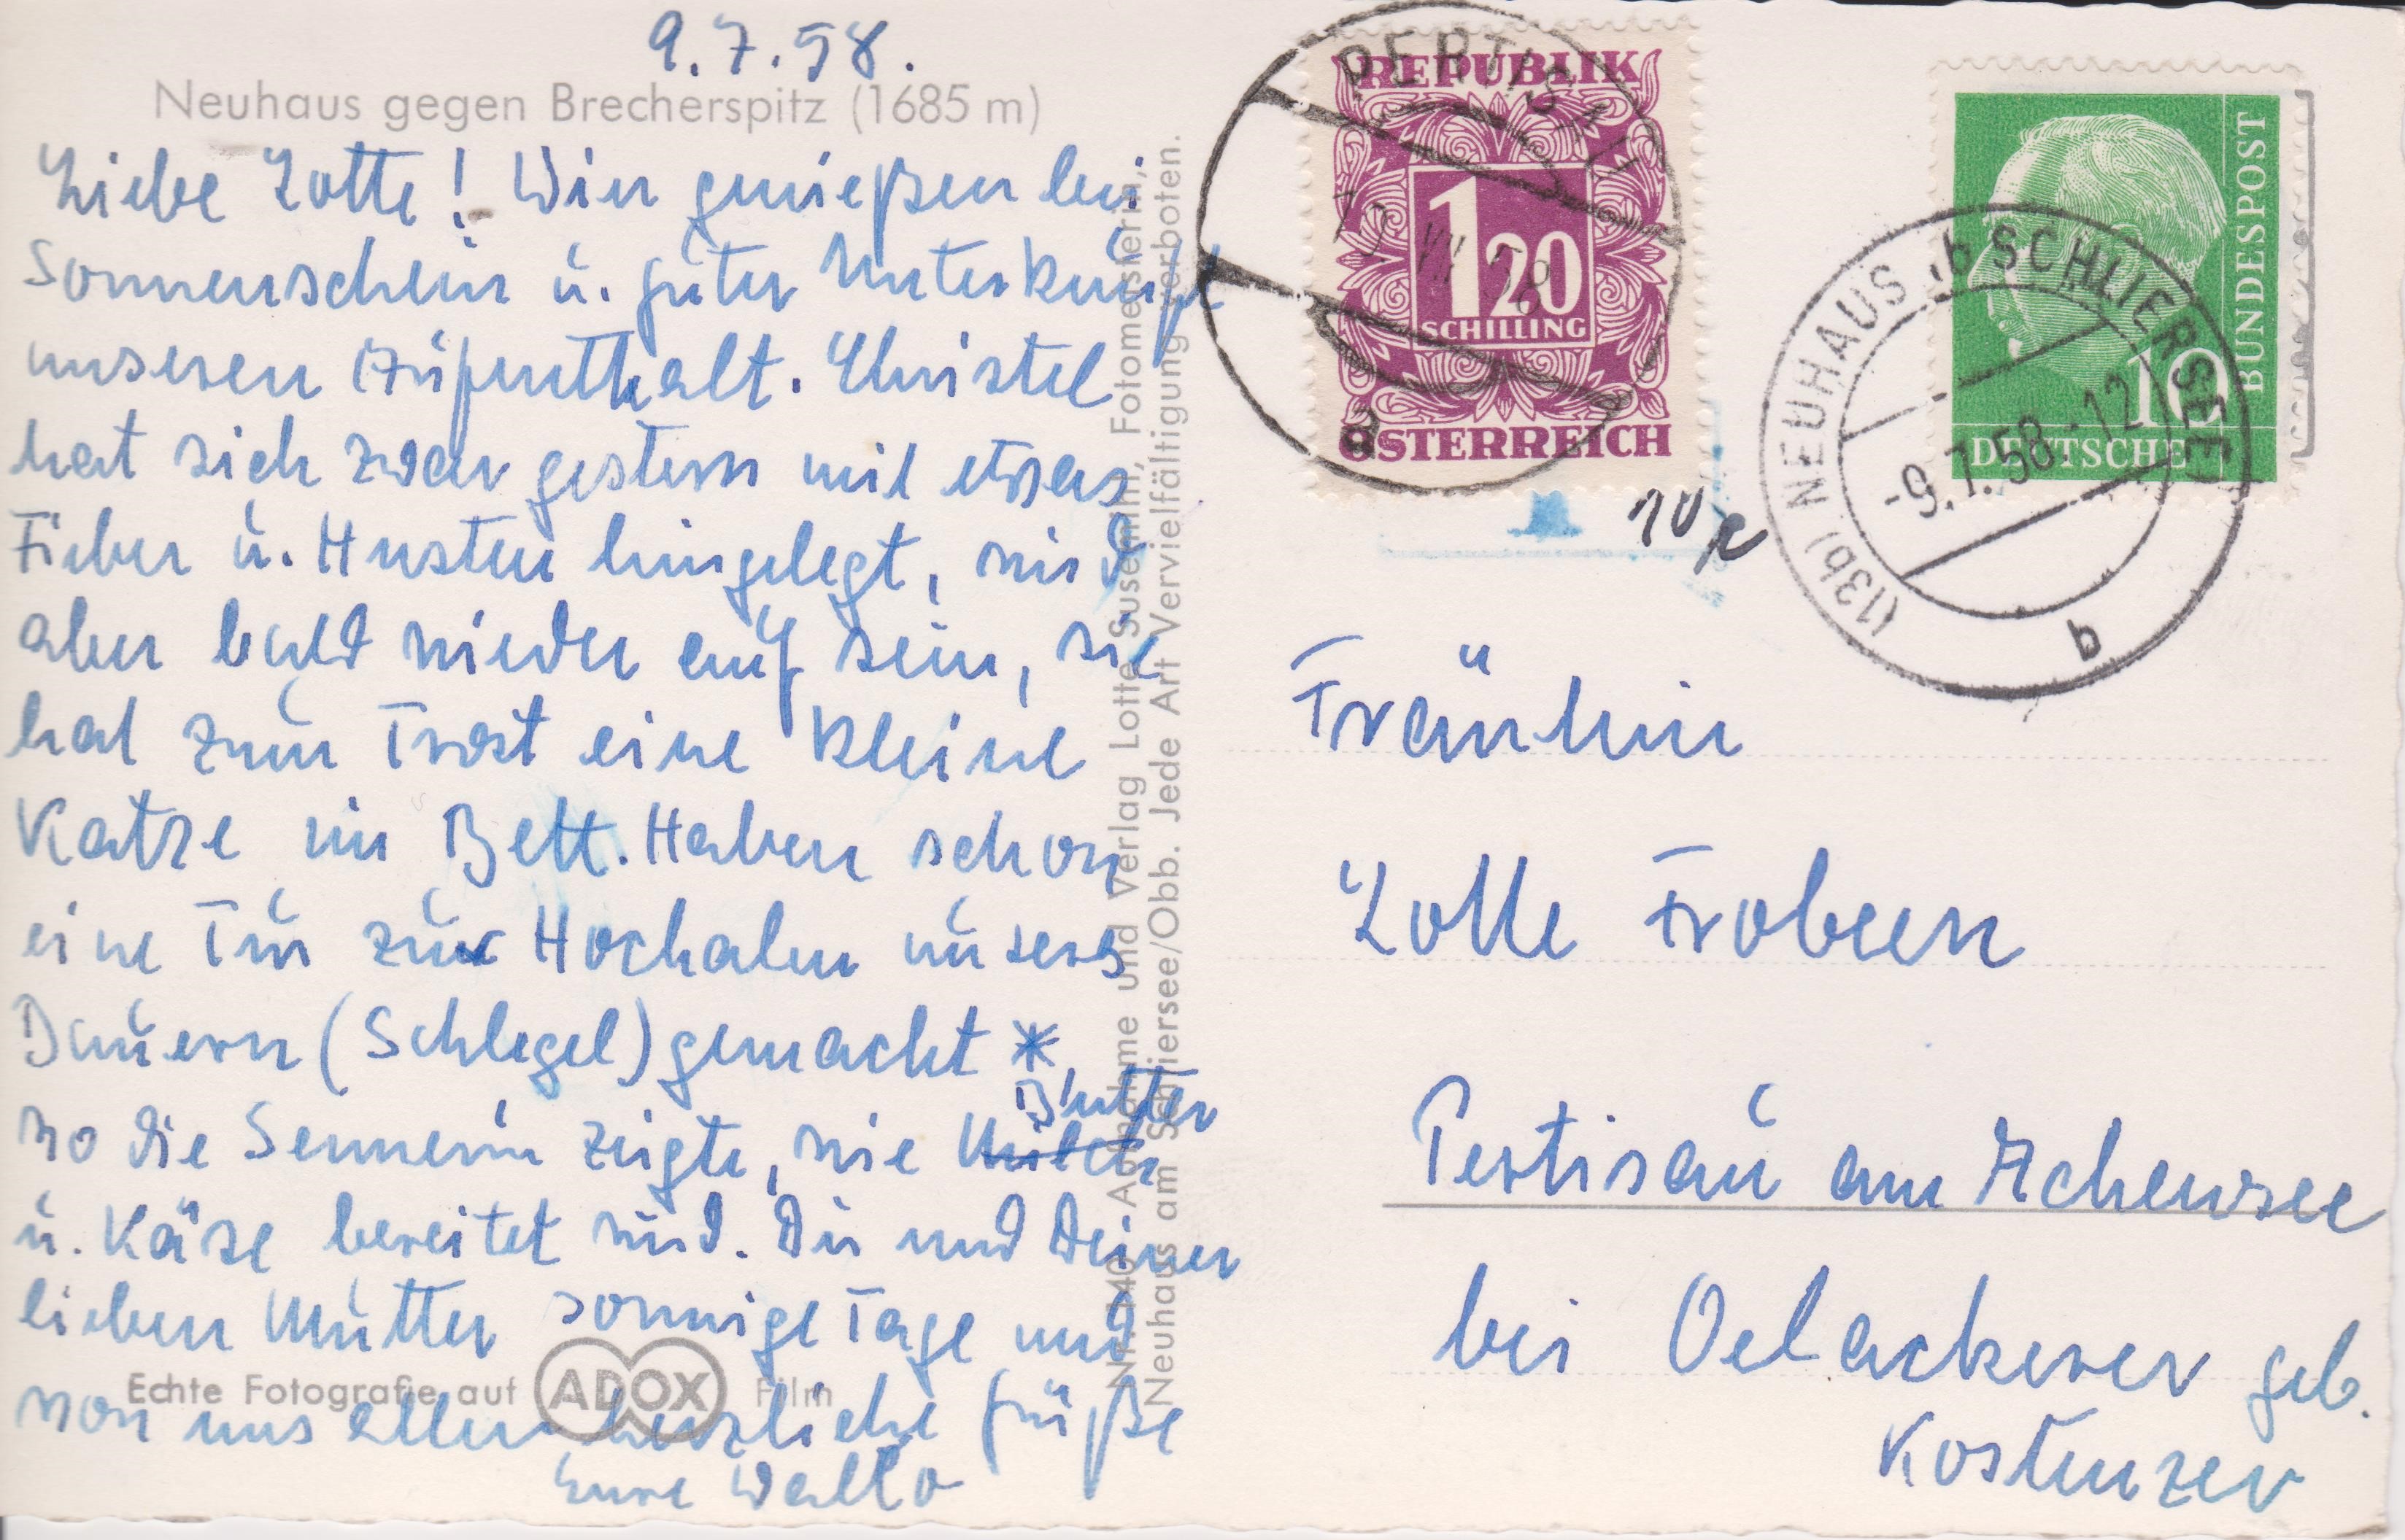 9.7.58.
Neuhaus gegen Brecherspitz (1685 m)
Liebe Lotte! Wir genießen bei
Sonnenschein u. guter Unterkunft
unseren Aufenthalt. Christel
hat sich zwar gestern mit etwas
Fieber u. Husten hingelegt, wird
aber bald wieder auf sein, sie
hat zum Trost eine kleine
Katze im Bett. Haben schon
eine Tur zur Hochalm unseres
Bauern (Schlegel) gemacht *,
wo die Sennerin zeigte, wie Milch Butter
u. Käse bereitet wird. Dir und Deiner
lieben Mutter sonnige Tage und
von uns allen herzliche Grüße
Eure
Echte Fotografie auf ADOX Film
Aufnahme und Verlag Lotte Susemihl, Fotomeisterin,
Neuhaus am Schliersee/Obb. Jede Art Vervielfältigung verboten.
REPUBLIK
1 20
SCHILLING
ÖSTERREICH
PERTISAU
10. VII. 58
a
DEUTSCHE
BUNDESPOST
10
(13b) NEUHAUS b SCHLIERSEE
-9.7.58-12
b
Fräulein
Lotte Frobeen
Pertisau am Achensee
bei Oelackerer geb.
Kostenzer